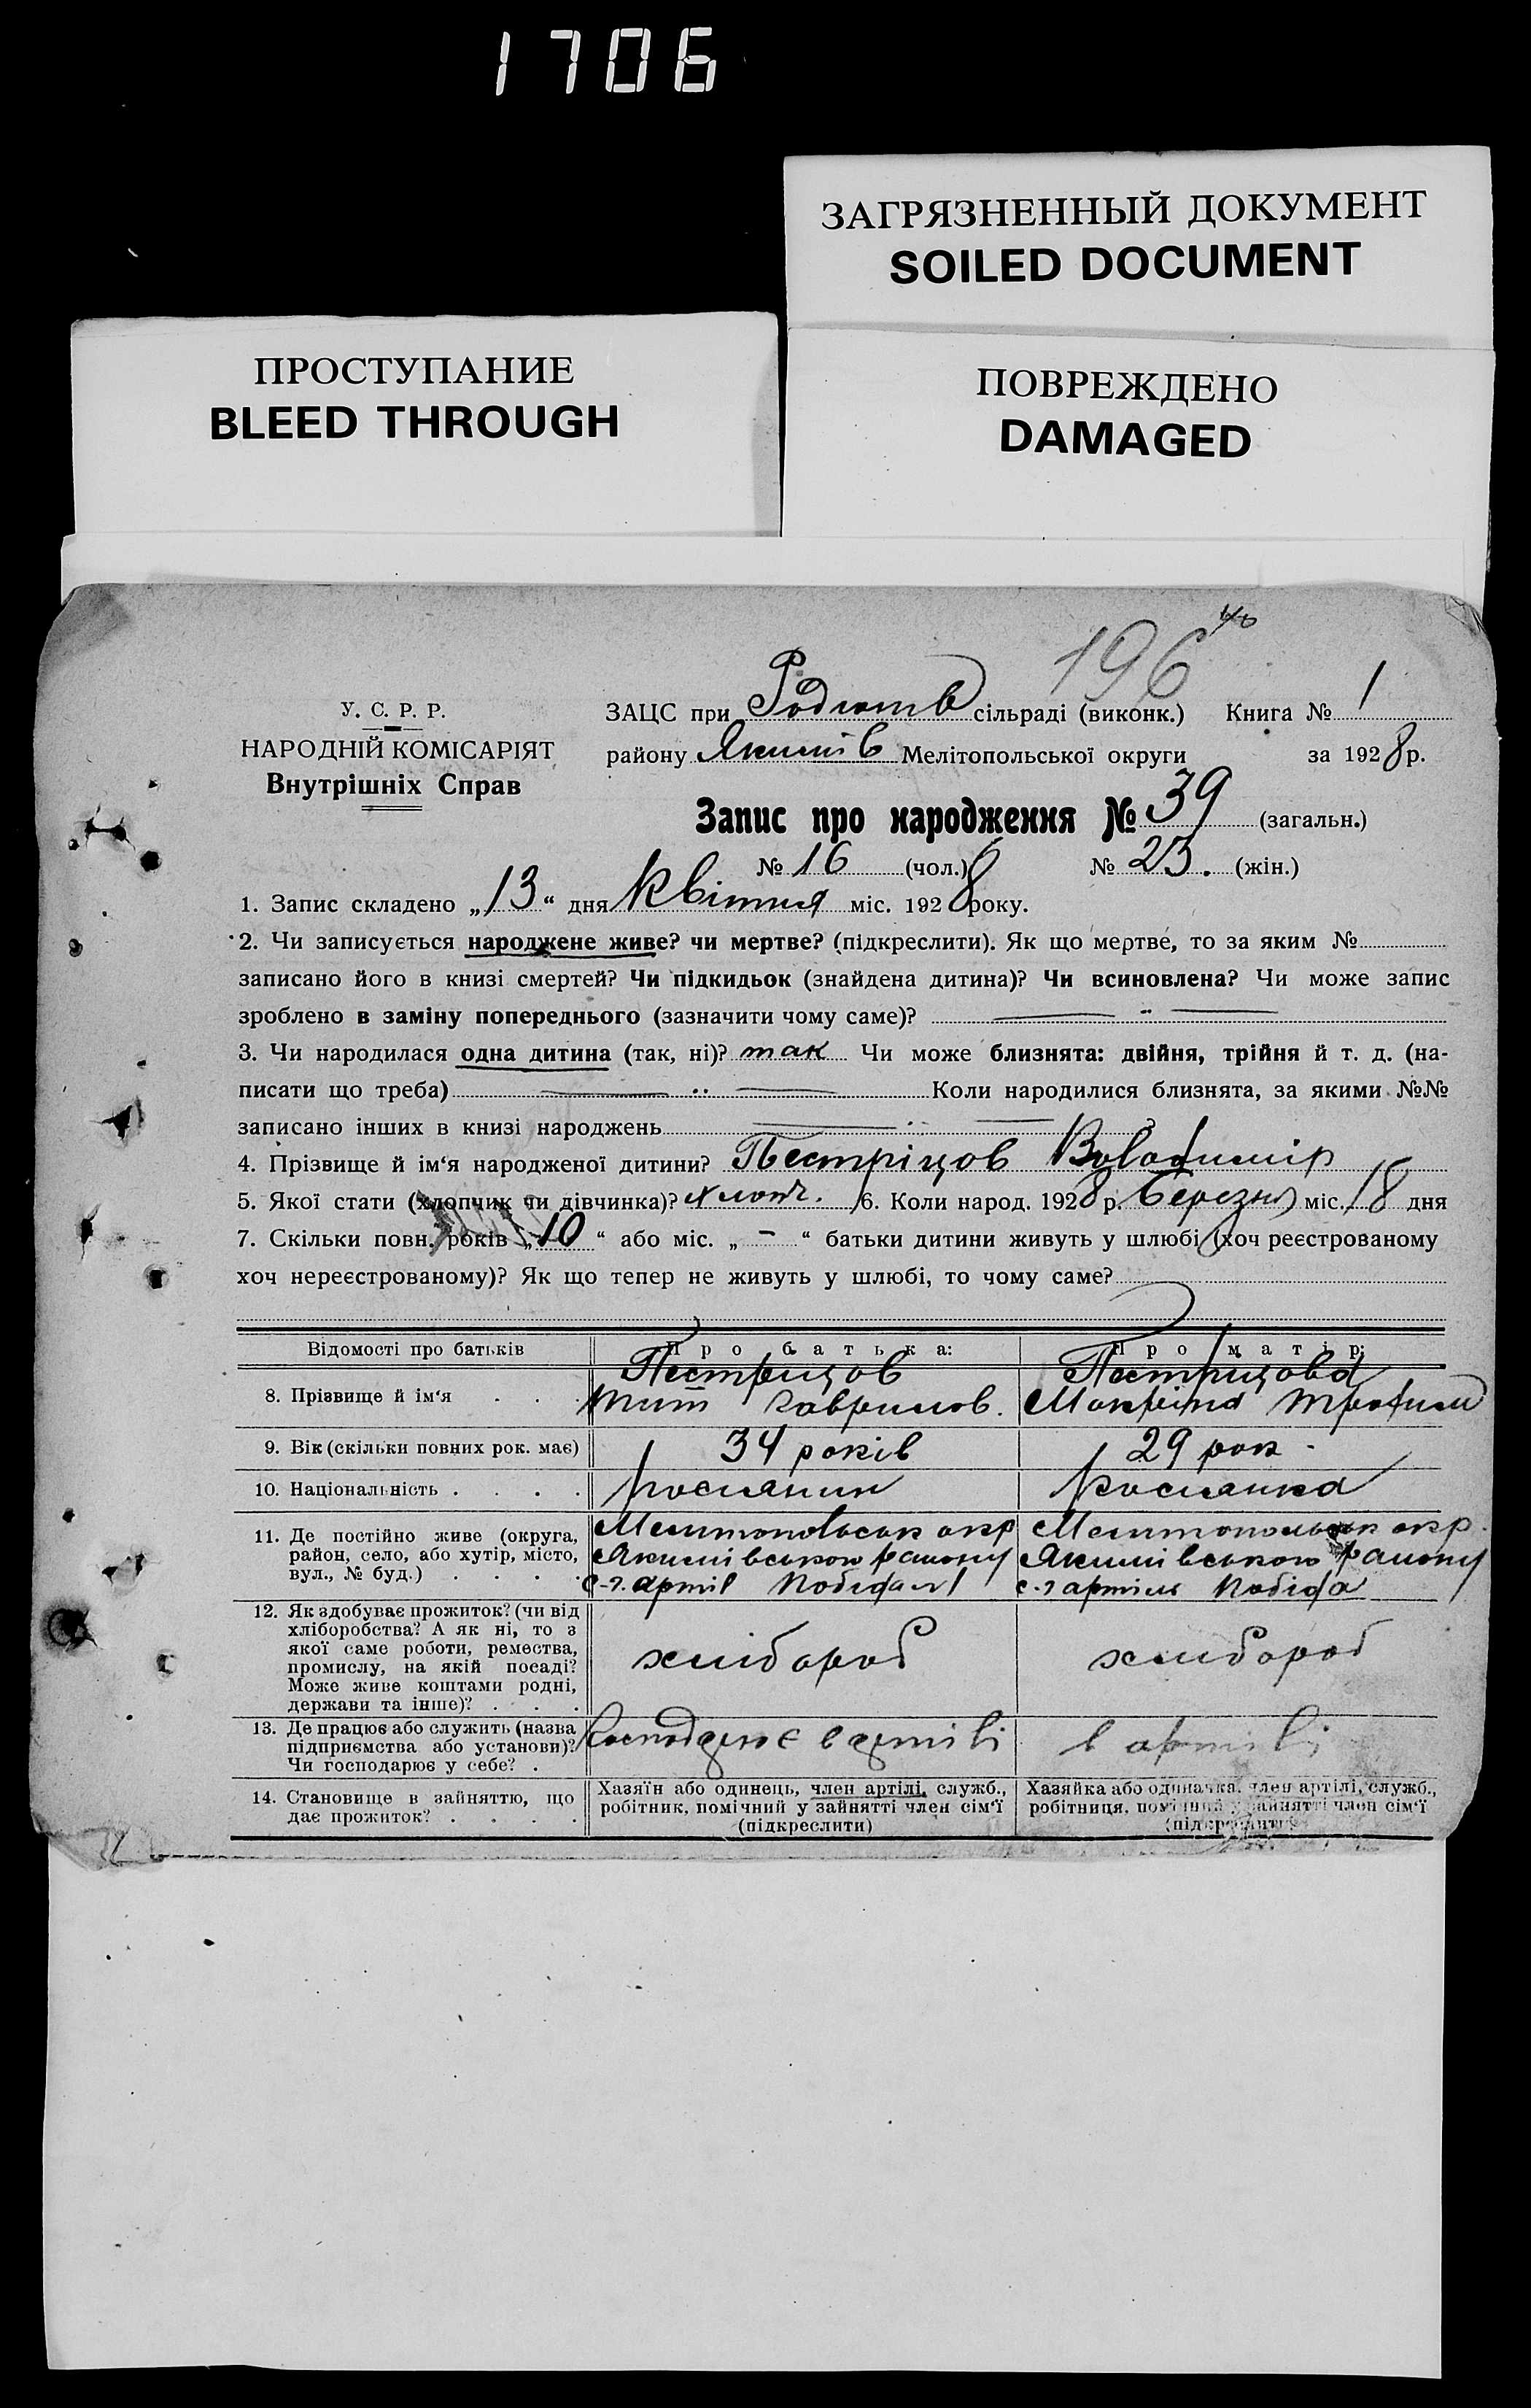 1706
ЗАГРЯЗНЕННЫЙ ДОКУМЕНТ
SOILED DOCUMENT
ПРОСТУПАНИЕ
BLEED THROUGH
ПОВРЕЖДЕНО
DAMAGED
196
У. С. Р. Р.
НАРОДНІЙ КОМІСАРІЯТ
Внутрішніх Справ
ЗАЦС при сільраді (виконк.) Книга № 1
району Якимів Мелітопольської округи за 1928 р.
Запис про народження № 39 (загальн.)
№ 16 (чол.) № 23. (жін.)
1. Запис складено „13“ дня Квітня міс. 1928 року.
2. Чи записується народжене живе? чи мертве? (підкреслити). Як що мертве, то за яким №
записано його в книзі смертей? Чи підкидьок (знайдена дитина)? Чи всиновлена? Чи може запис
зроблено в заміну попереднього (зазначити чому саме)?
3. Чи народилася одна дитина (так, ні)? так Чи може близнята: двійня, трійня й т. д. (на-
писати що треба) Коли народилися близнята, за якими №№
записано інших в книзі народжень
4. Прізвище й ім‘я народженої дитини? Пестріцов Володимір
5. Якої стати (хлопчик чи дівчинка)? хлопч. 6. Коли народ. 1928 р. березня міс. 18 дня
7. Скільки повн. років „10“ або міс. „ - “ батьки дитини живуть у шлюбі (хоч реєстрованому
хоч нереєстрованому)? Як що тепер не живуть у шлюбі, то чому саме?
Відомості про батьків Про батька: Про матір:
8. Прізвище й ім‘я Пестрицов Тит Гаврилов. Пестрицова Макріна Трофим
9. Вік (скільки повних рок. має) 34 років 29 рок.
10. Національність росианин росианка
11. Де постійно живе (округа, Мелитопольськ окр Мелитопольськ окр.
район, село, або хутір, місто, Якимівського району Якимівського району
вул., № буд.) с.-г. артіл с.-г артіль Побіда
12. Як здобуває прожиток? (чи від
хліборобства? А як ні, то з
якої саме роботи, ремества, хлібороб хлибороб
промислу, на якій посаді?
Може живе коштами родні,
держави та інше)?
13. Де працює або служить (назва
підприємства або установи)? Господарює в артілі в артілі
Чи господарює у себе?
14. Становище в зайняттю, що Хазяїн або одинець, член артілі, служб., Хазяйка або одиначка, член артілі, служб.,
дає прожиток? робітник, помічний у зайнятті член сім‘ї робітниця, помічний у зайнятті член сім‘ї
(підкреслити) (підкреслити)